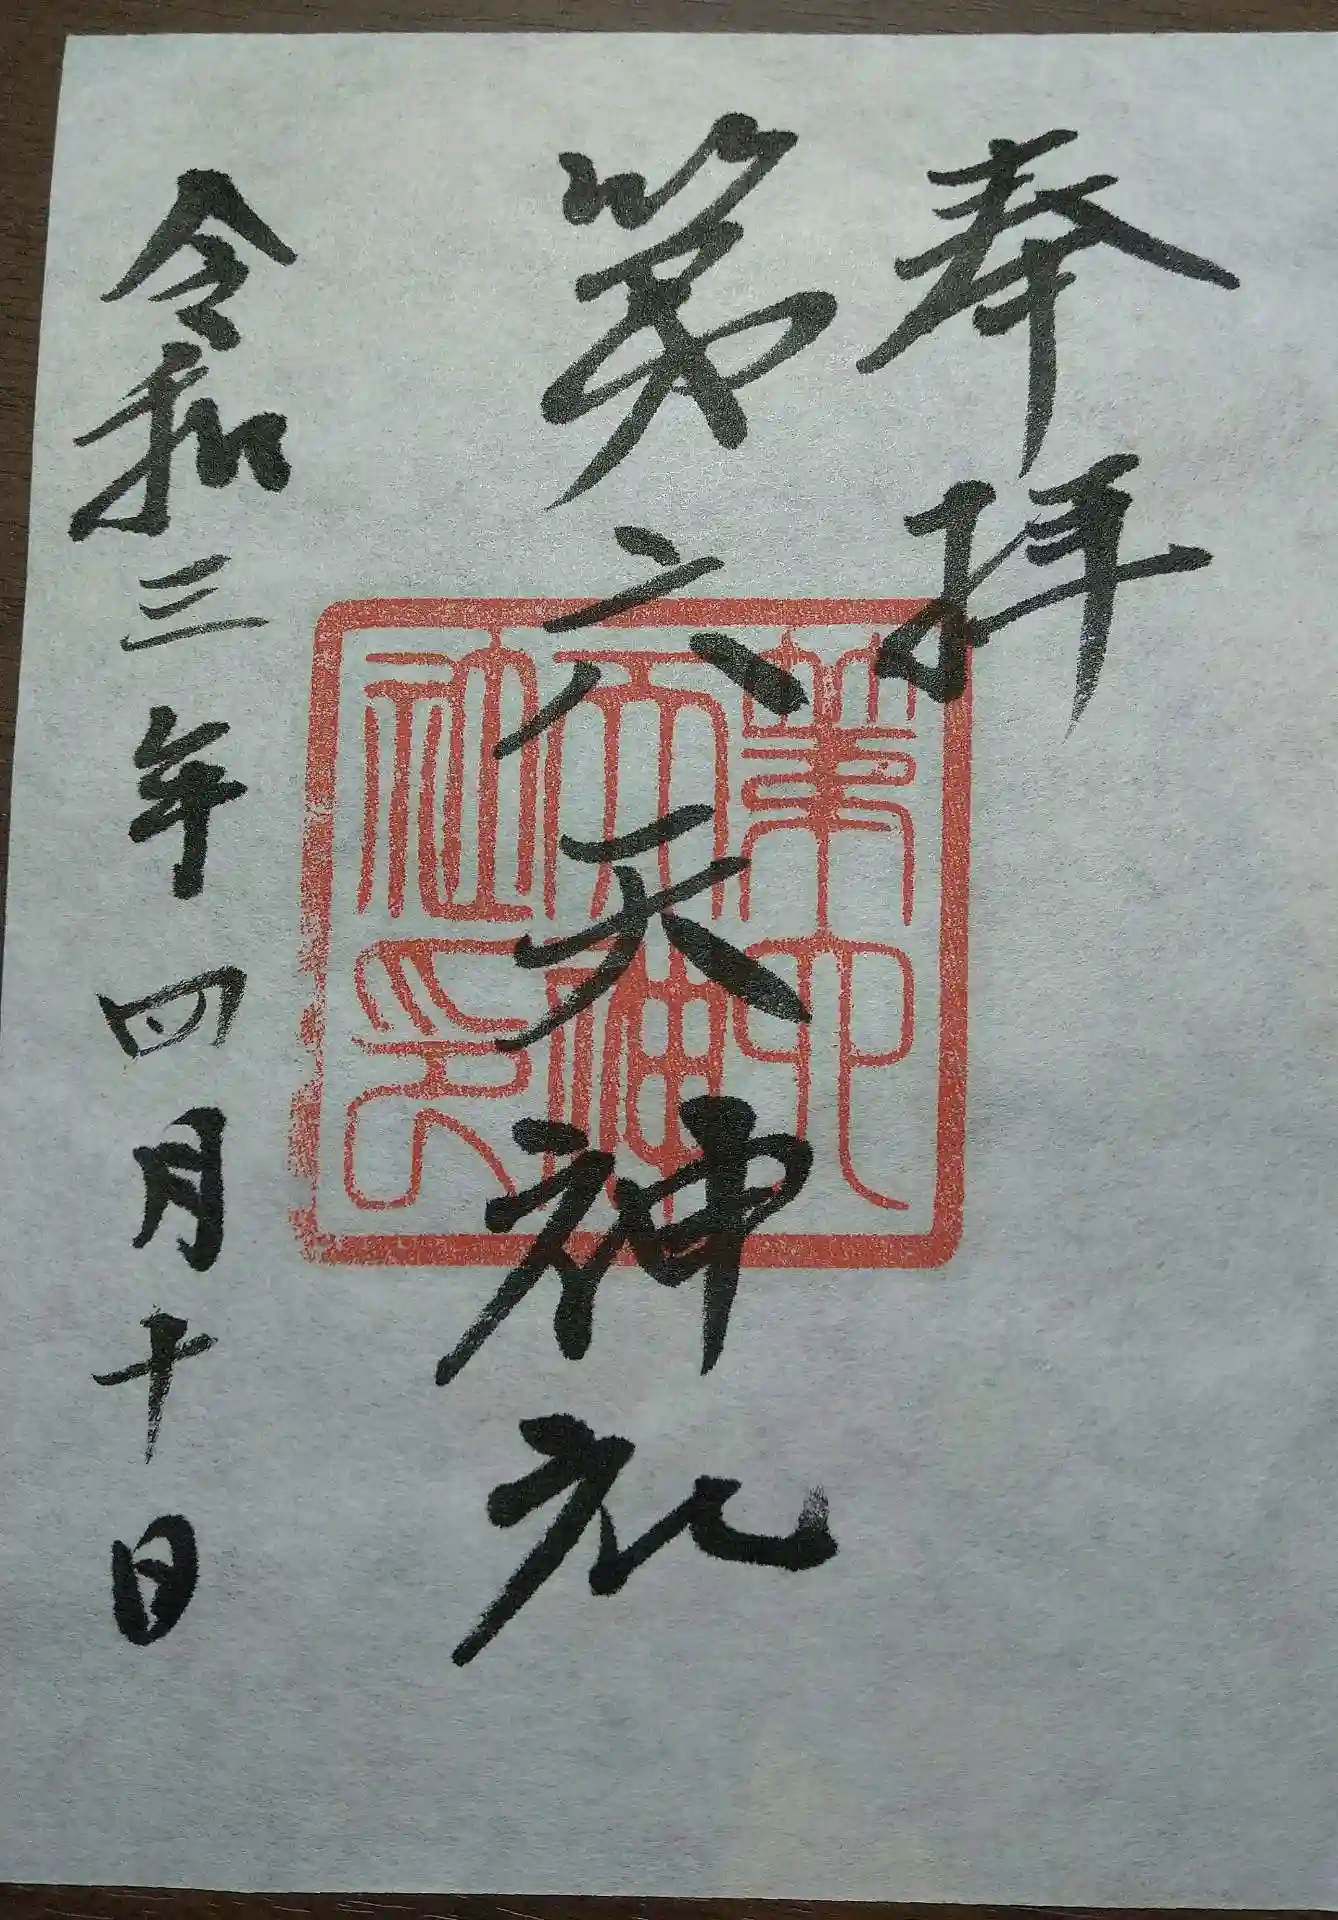 奉拝
第六天神社
令和三年四月十日
第六天神社印